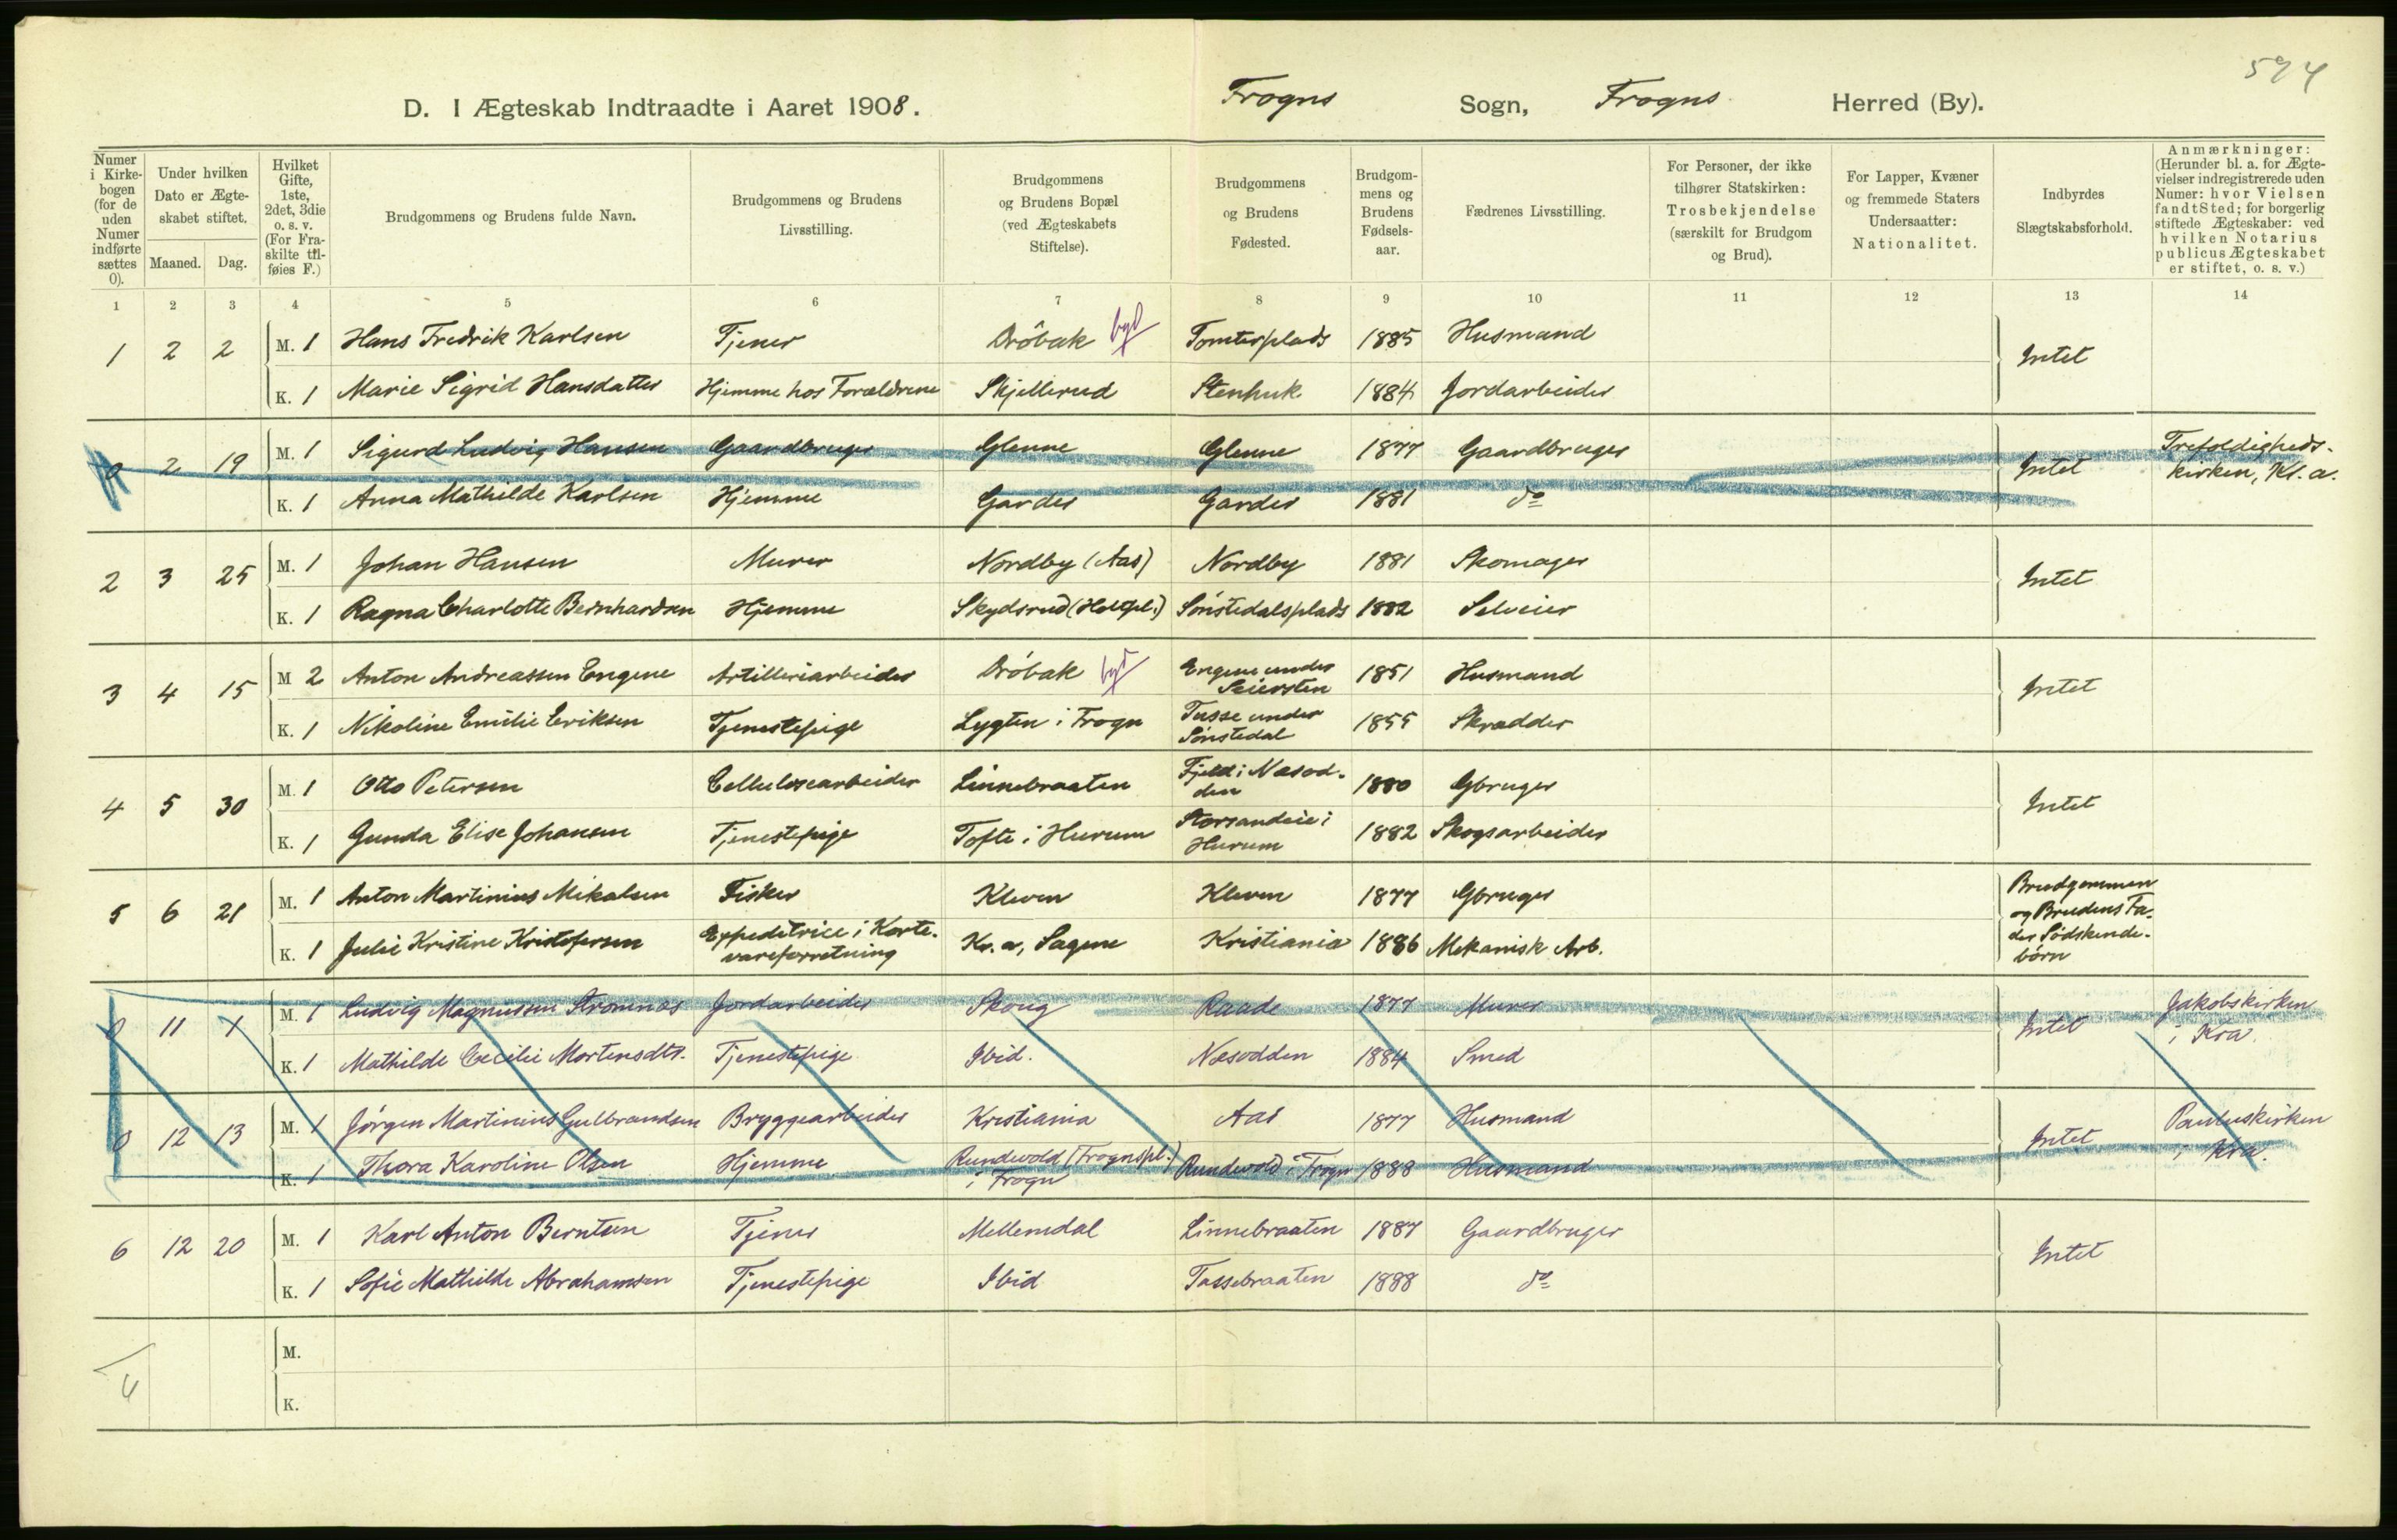 594
D. I Ægteskab Indtraadte i Aaret 1908. Frogns Sogn, Frogns Herred (By).
Numer i Kirkebogen (for de uden Numer indførte sættes 0).
Under hvilken Dato er Ægteskabet stiftet.
Maaned. Dag.
Hvilket Gifte, 1ste, 2det, 3die o. s. v. (For Fraskilte tilføies F.)
Brudgommens og Brudens fulde Navn.
Brudgommens og Brudens Livsstilling.
Brudgommens og Brudens Bopæl (ved Ægteskabets Stiftelse).
Brudgommens og Brudens Fødested.
Brudgommens og Brudens Fødselsaar.
Fædrenes Livsstilling.
For Personer, der ikke tilhører Statskirken: Trosbekjendelse (særskilt for Brudgom og Brud).
For Lapper, Kvæner og fremmede Staters Undersaatter: Nationalitet.
Indbyrdes Slægtskabsforhold.
Anmærkninger: (Herunder bl. a. for Ægtevielser indregistrerede uden Numer: hvor Vielsen fandt Sted; for borgerlig stiftede Ægteskaber: ved hvilken Notarius publicus Ægteskabet er stiftet, o. s. v.)
1 2 3 4 5 6 7 8 9 10 11 12 13 14
1 2 2 M. 1 Hans Fredrik Karlsen Tjener Dröbak by Tomterplads 1885 Husmand Intet
K. 1 Marie Sigrid Hansdatter Hjemme hos Forældrene Skjellerud Stenhuk 1884 Jordarbeider
0 2 19 M. 1 Sigurd Ludvig Hansen Gaardbruger Glenne Glenne 1877 Gaardbruger Intet Trefoldigheds-
kirken, Kr.a.
K. 1 Anna Mathilde Karlsen Hjemme Garder Garder 1881 do
2 3 25 M. 1 Johan Hansen Murer Nordby (Aas) Nordby 1881 Skomager Intet
K. 1 Ragna Charlotte Bernhardsen Hjemme Skydsrud (Holtpl.) Sönstedalsplads 1882 Selveier
3 4 15 M 2 Anton Andreassen Engene Artilleriarbeider Dröbak by Engene under
Seiersten 1851 Husmand Intet
K. 1 Nikoline Emilie Eriksen Tjenestepige Lygten i Frogn Tusse under
Sönstedal 1855 Skrædder
4 5 30 M. 1 Otto Petersen Cellulosearbeider Linnebraaten Fjeld i Næsod-
den 1880 Gbruger Intet
K. 1 Gunda Elise Johansen Tjenestepige Tofte i Hurum Storsandeie i
Hurum 1882 Skogsarbeider
5 6 21 M. 1 Anton Martinius Mikalsen Fisker Kleven Kleven 1877 Gbruger Brudgommen
og Brudens Fa-
der Södskende-
börn
K. 1 Julie Kristine Kristofersen Expeditrice i Korte-
vareforretning Kr.a, Sagene Kristiania 1886 Mekanisk Arb.
0 11 1 M. 1 Ludvig Magnussen Stromnæs Jordarbeider Skoug Raade 1877 Murer Intet Jakobskirken
i Kra.
K. 1 Mathilde Cecilie Mortensdtr. Tjenestepige Ibid. Næsodden 1884 Smed
0 12 13 M. 1 Jörgen Martinius Gulbrandsen Bryggearbeider Kristiania Aas 1877 Husmand Intet Pauluskirken
i Kra.
K. 1 Thora Karoline Olsen Hjemme Rundvold (Frognspl.)
i Frogn Rundvold i Frogn 1888 Husmand
6 12 20 M. 1 Karl Anton Berntsen Tjener Mellemdal Linnebraaten 1887 Gaardbruger Intet
K. 1 Sofie Mathilde Abrahamsen Tjenestepige Ibid Tassebraaten 1888 do
M.
K.